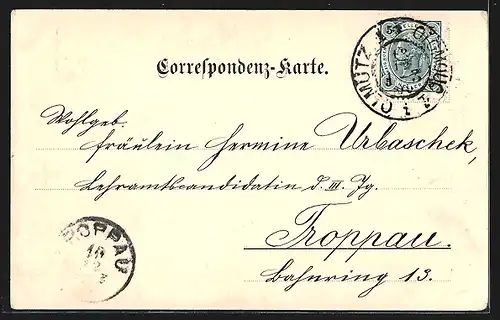 OLMÜTZ 1
Correspondenz-Karte.
Wohlgeb.
Fräulein Hermine Urbaschek,
Lehramtscandidatin d. III. Jg.
Troppau.
Bahnring 13.
TROPPAU